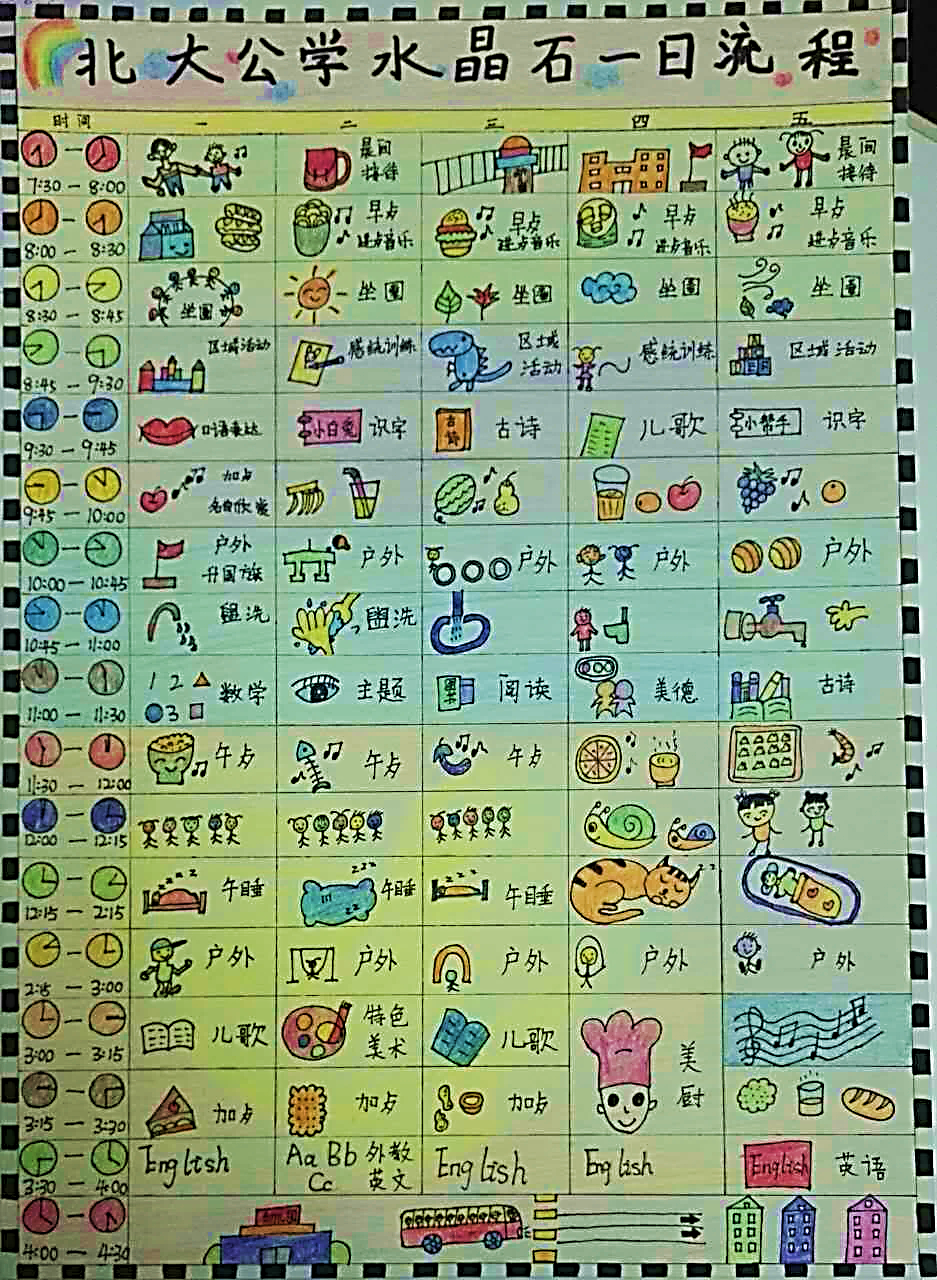 北大公学水晶石一日流程
时间 一 二 三 四 五
7:30 — 8:00 晨间接待 晨间接待
8:00 — 8:30 早点 进点音乐 早点 进点音乐 早点 进点音乐 早点 进点音乐
8:30 — 8:45 坐圈 坐圈 坐圈 坐圈 坐圈
8:45 — 9:30 区域活动 感统训练 区域活动 感统训练 区域活动
9:30 — 9:45 口语表达 小白兔 识字 古诗 古诗 儿歌 小帮手 识字
9:45 — 10:00 加点
10:00 — 10:45 户外 升国旗 户外 户外 户外 户外
10:45 — 11:00 盥洗 盥洗
11:00 — 11:30 1 2 3 数学 主题 阅读 美德 古诗
11:30 — 12:00 午点 午点 午点
12:00 — 12:15
12:15 — 2:15 zzzz 午睡 zzz zz 午睡 zzz 午睡 zz
2:15 — 3:00 户外 户外 户外 户外 户外
3:00 — 3:15 儿歌 特色美术 儿歌 美厨
3:15 — 3:30 加点 加点 加点
3:30 — 4:00 English Aa Bb Cc 外教英文 English English English 英语
4:00 — 4:30